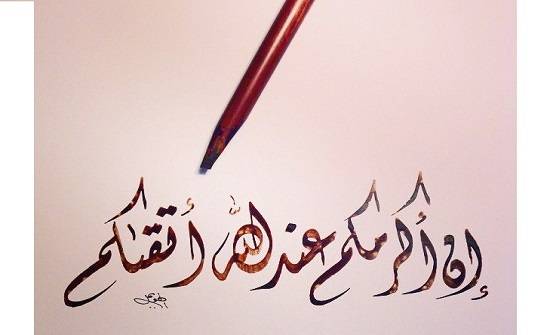 إن أكرمكم عند الله أتقٰكم